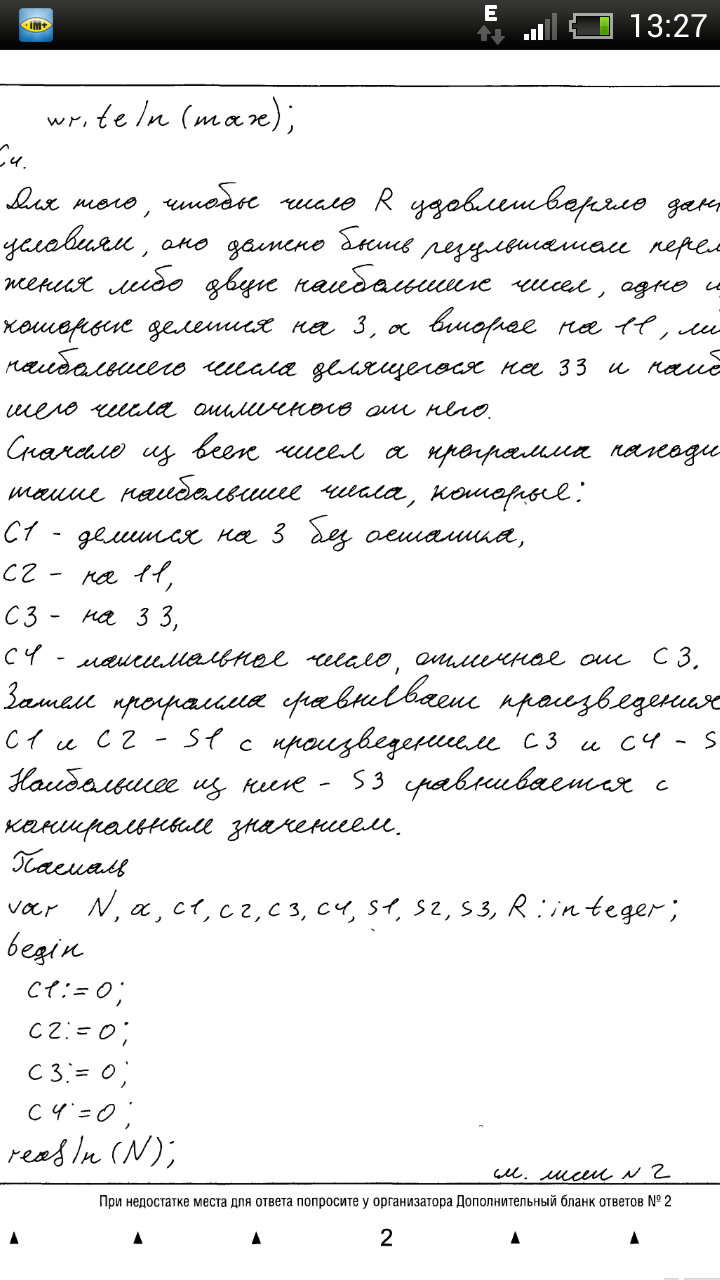 iM+
E
13:27
writeln(max);
C4.
Для того, чтобы число R удовлетворяло дан
условиям, оно должно быть результатом перем
жения либо двух наибольших чисел, одно и
которых делится на 3, а второе на 11, ли
наибольшего числа делящегося на 33 и наиб
шего числа отличного от него.
Сначало из всех чисел a программа находи
такие наибольшие числа, которые:
C1 - делится на 3 без остатка,
C2 - на 11,
C3 - на 33,
C4 - максимальное число, отличное от C3.
Затем программа сравнивает произведения
C1 и C2 - S1 с произведением C3 и C4 - S
Наибольшее из них - S3 сравнивается с
контрольным значением.
Паскаль
var N, a, C1, C2, C3, C4, S1, S2, S3, R : integer;
begin
C1:=0;
C2:=0;
C3:=0;
C4:=0;
readln(N);
см. лист N 2
При недостатке места для ответа попросите у организатора Дополнительный бланк ответов № 2
2